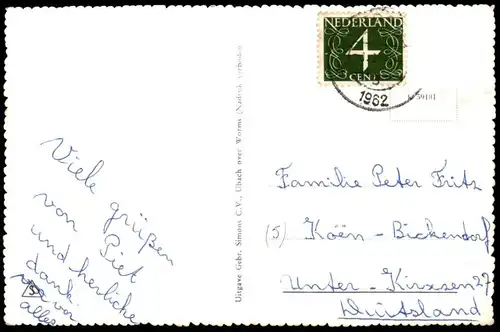 NEDERLAND
4
CENT
1962
Viele grüßen
von Piet
und herliche
dank
voor
alles
Uitgave Gebr. Simons C.V., Ubach over Worms (Nadruk verboden)
Familie Peter Fritz
(5) Köën-Bickendorf
Unter-Kirxsen 27
Duitsland